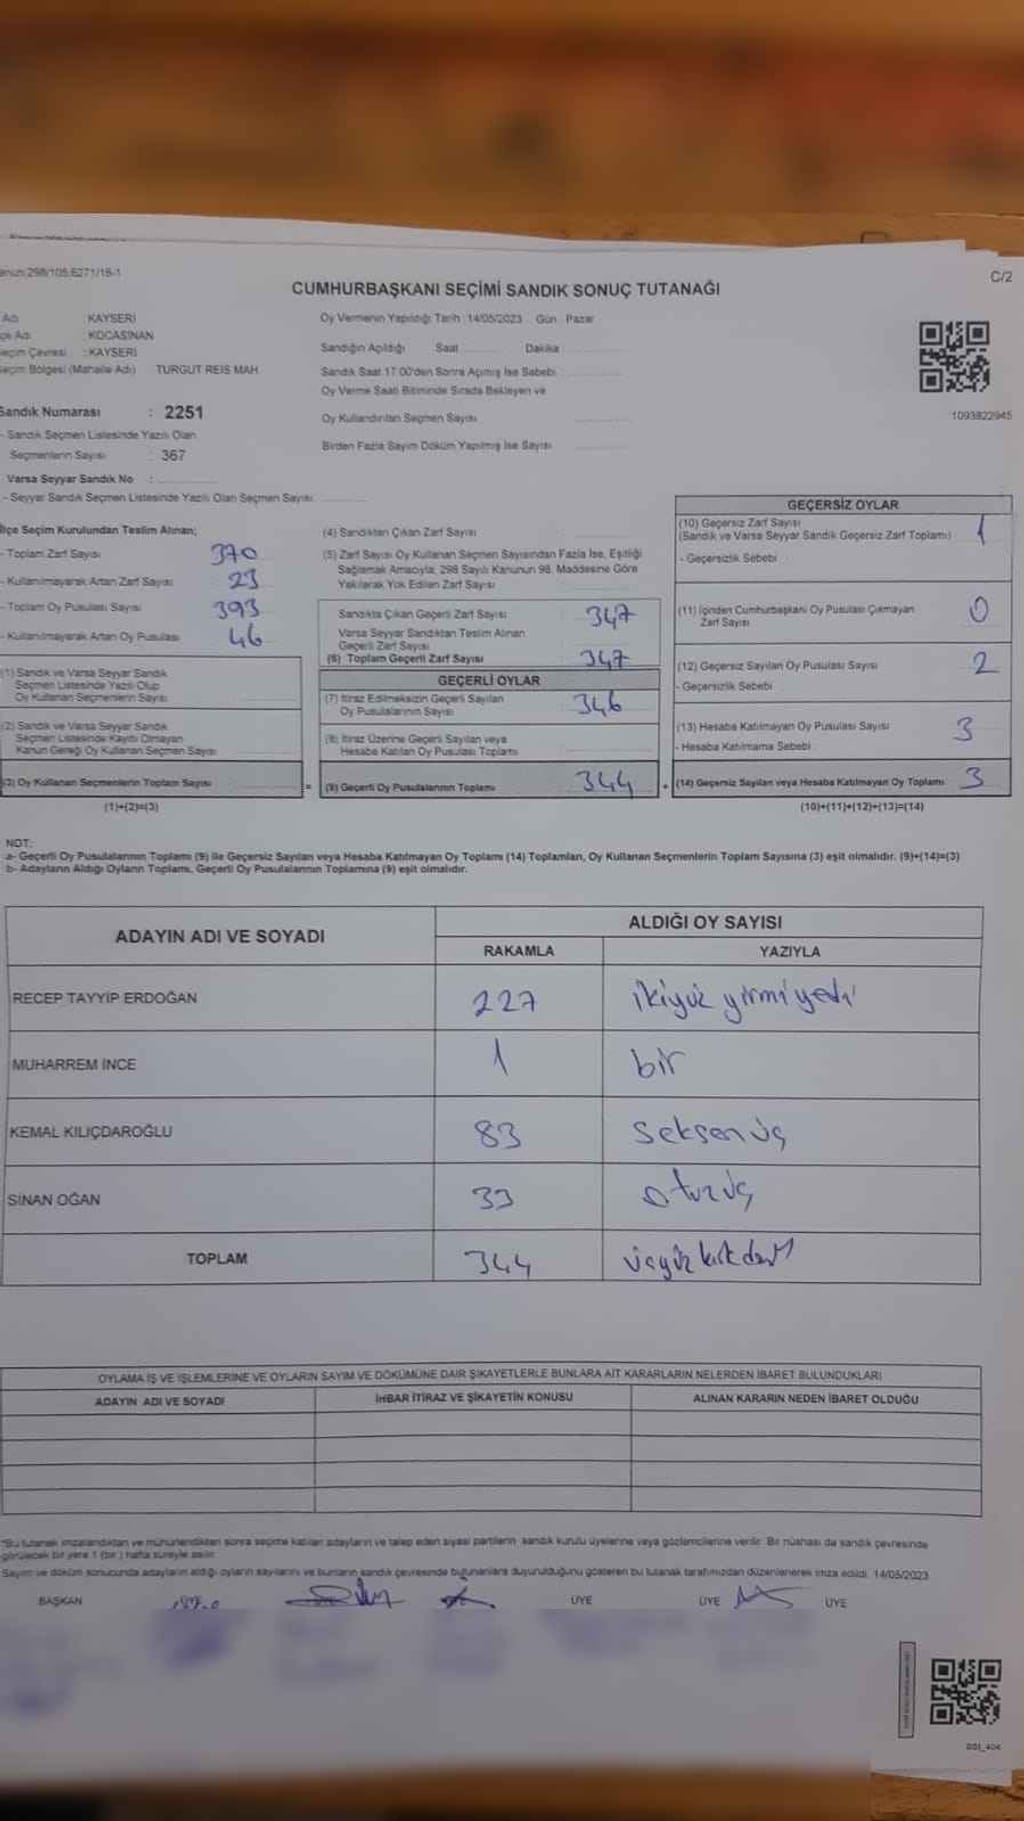 298/105.6271/18-1
C/2
CUMHURBAŞKANI SEÇİMİ SANDIK SONUÇ TUTANAĞI
Adı : KAYSERİ
Adı : KOCASİNAN
Seçim Çevresi : KAYSERİ
Seçim Bölgesi (Mahalle Adı) TURGUT REİS MAH.
Sandık Numarası : 2251
- Sandık Seçmen Listesinde Yazılı Olan
Seçmenlerin Sayısı : 367
Varsa Seyyar Sandık No :
- Seyyar Sandık Seçmen Listesinde Yazılı Olan Seçmen Sayısı
Oy Vermenin Yapıldığı Tarih :14/05/2023 Gün : Pazar
Sandığın Açıldığı Saat Dakika
Sandık Saat 17.00'den Sonra Açılmış İse Sebebi
Oy Verme Saati Bitiminde Sırada Bekleyen ve
Oy Kullandırılan Seçmen Sayısı
Birden Fazla Sayım Döküm Yapılmış İse Sayısı
1093822945
İlçe Seçim Kurulundan Teslim Alınan;
- Toplam Zarf Sayısı 370
- Kullanılmayarak Artan Zarf Sayısı 23
- Toplam Oy Pusulası Sayısı 393
- Kullanılmayarak Artan Oy Pusulası 46
(1) Sandık ve Varsa Seyyar Sandık
Seçmen Listesinde Yazılı Olup
Oy Kullanan Seçmenlerin Sayısı
(2) Sandık ve Varsa Seyyar Sandık
Seçmen Listesinde Kayıtlı Olmayan
Kanun Gereği Oy Kullanan Seçmen Sayısı
(3) Oy Kullanan Seçmenlerin Toplam Sayısı
(1)+(2)=(3)
(4) Sandıktan Çıkan Zarf Sayısı
(5) Zarf Sayısı Oy Kullanan Seçmen Sayısından Fazla İse, Eşitliği
Sağlamak Amacıyla, 298 Sayılı Kanunun 98. Maddesine Göre
Yakılarak Yok Edilen Zarf Sayısı
Sandıkta Çıkan Geçerli Zarf Sayısı 347
Varsa Seyyar Sandıktan Teslim Alınan
Geçerli Zarf Sayısı
(6) Toplam Geçerli Zarf Sayısı 347
GEÇERLİ OYLAR
(7) İtiraz Edilmeksizin Geçerli Sayılan
Oy Pusulalarının Sayısı 346
(8) İtiraz Üzerine Geçerli Sayılan veya
Hesaba Katılan Oy Pusulası Toplamı
= (9) Geçerli Oy Pusulalarının Toplamı 344
GEÇERSİZ OYLAR
(10) Geçersiz Zarf Sayısı
(Sandık ve Varsa Seyyar Sandık Geçersiz Zarf Toplamı) 1
- Geçersizlik Sebebi
(11) İçinden Cumhurbaşkanı Oy Pusulası Çıkmayan
Zarf Sayısı 0
(12) Geçersiz Sayılan Oy Pusulası Sayısı 2
- Geçersizlik Sebebi
(13) Hesaba Katılmayan Oy Pusulası Sayısı 3
- Hesaba Katılmama Sebebi
+ (14) Geçersiz Sayılan veya Hesaba Katılmayan Oy Toplamı 3
(10)+(11)+(12)+(13)=(14)
NOT:
a- Geçerli Oy Pusulalarının Toplamı (9) ile Geçersiz Sayılan veya Hesaba Katılmayan Oy Toplamı (14) Toplamları, Oy Kullanan Seçmenlerin Toplam Sayısına (3) eşit olmalıdır. (9)+(14)=(3)
b- Adayların Aldığı Oyların Toplamı, Geçerli Oy Pusulalarının Toplamına (9) eşit olmalıdır.
ADAYIN ADI VE SOYADI
ALDIĞI OY SAYISI
RAKAMLA YAZIYLA
RECEP TAYYİP ERDOĞAN 227 ikiyüz yirmiyedi
MUHARREM İNCE 1 bir
KEMAL KILIÇDAROĞLU 83 seksenüç
SİNAN OĞAN 33 otuzüç
TOPLAM 344 üçyüz kırkdört
OYLAMA İŞ VE İŞLEMLERİNE VE OYLARIN SAYIM VE DÖKÜMÜNE DAİR ŞİKAYETLERLE BUNLARA AİT KARARLARIN NELERDEN İBARET BULUNDUKLARI
ADAYIN ADI VE SOYADI İHBAR İTİRAZ VE ŞİKAYETİN KONUSU ALINAN KARARIN NEDEN İBARET OLDUĞU
*Bu tutanak imzalandıktan ve mühürlendikten sonra seçime katılan adayların ve talep eden siyasi partilerin sandık kurulu üyelerine veya gözlemcilerine verilir. Bir nüshası da sandık çevresinde
görülecek bir yere 1 (bir) hafta süreyle asılır.
Sayım ve döküm sonucunda adayların aldığı oyların sayılarını ve bunların sandık çevresinde bulunanlara duyurulduğunu gösteren bu tutanak tarafımızdan düzenlenerek imza edildi. 14/05/2023
BAŞKAN ÜYE ÜYE ÜYE